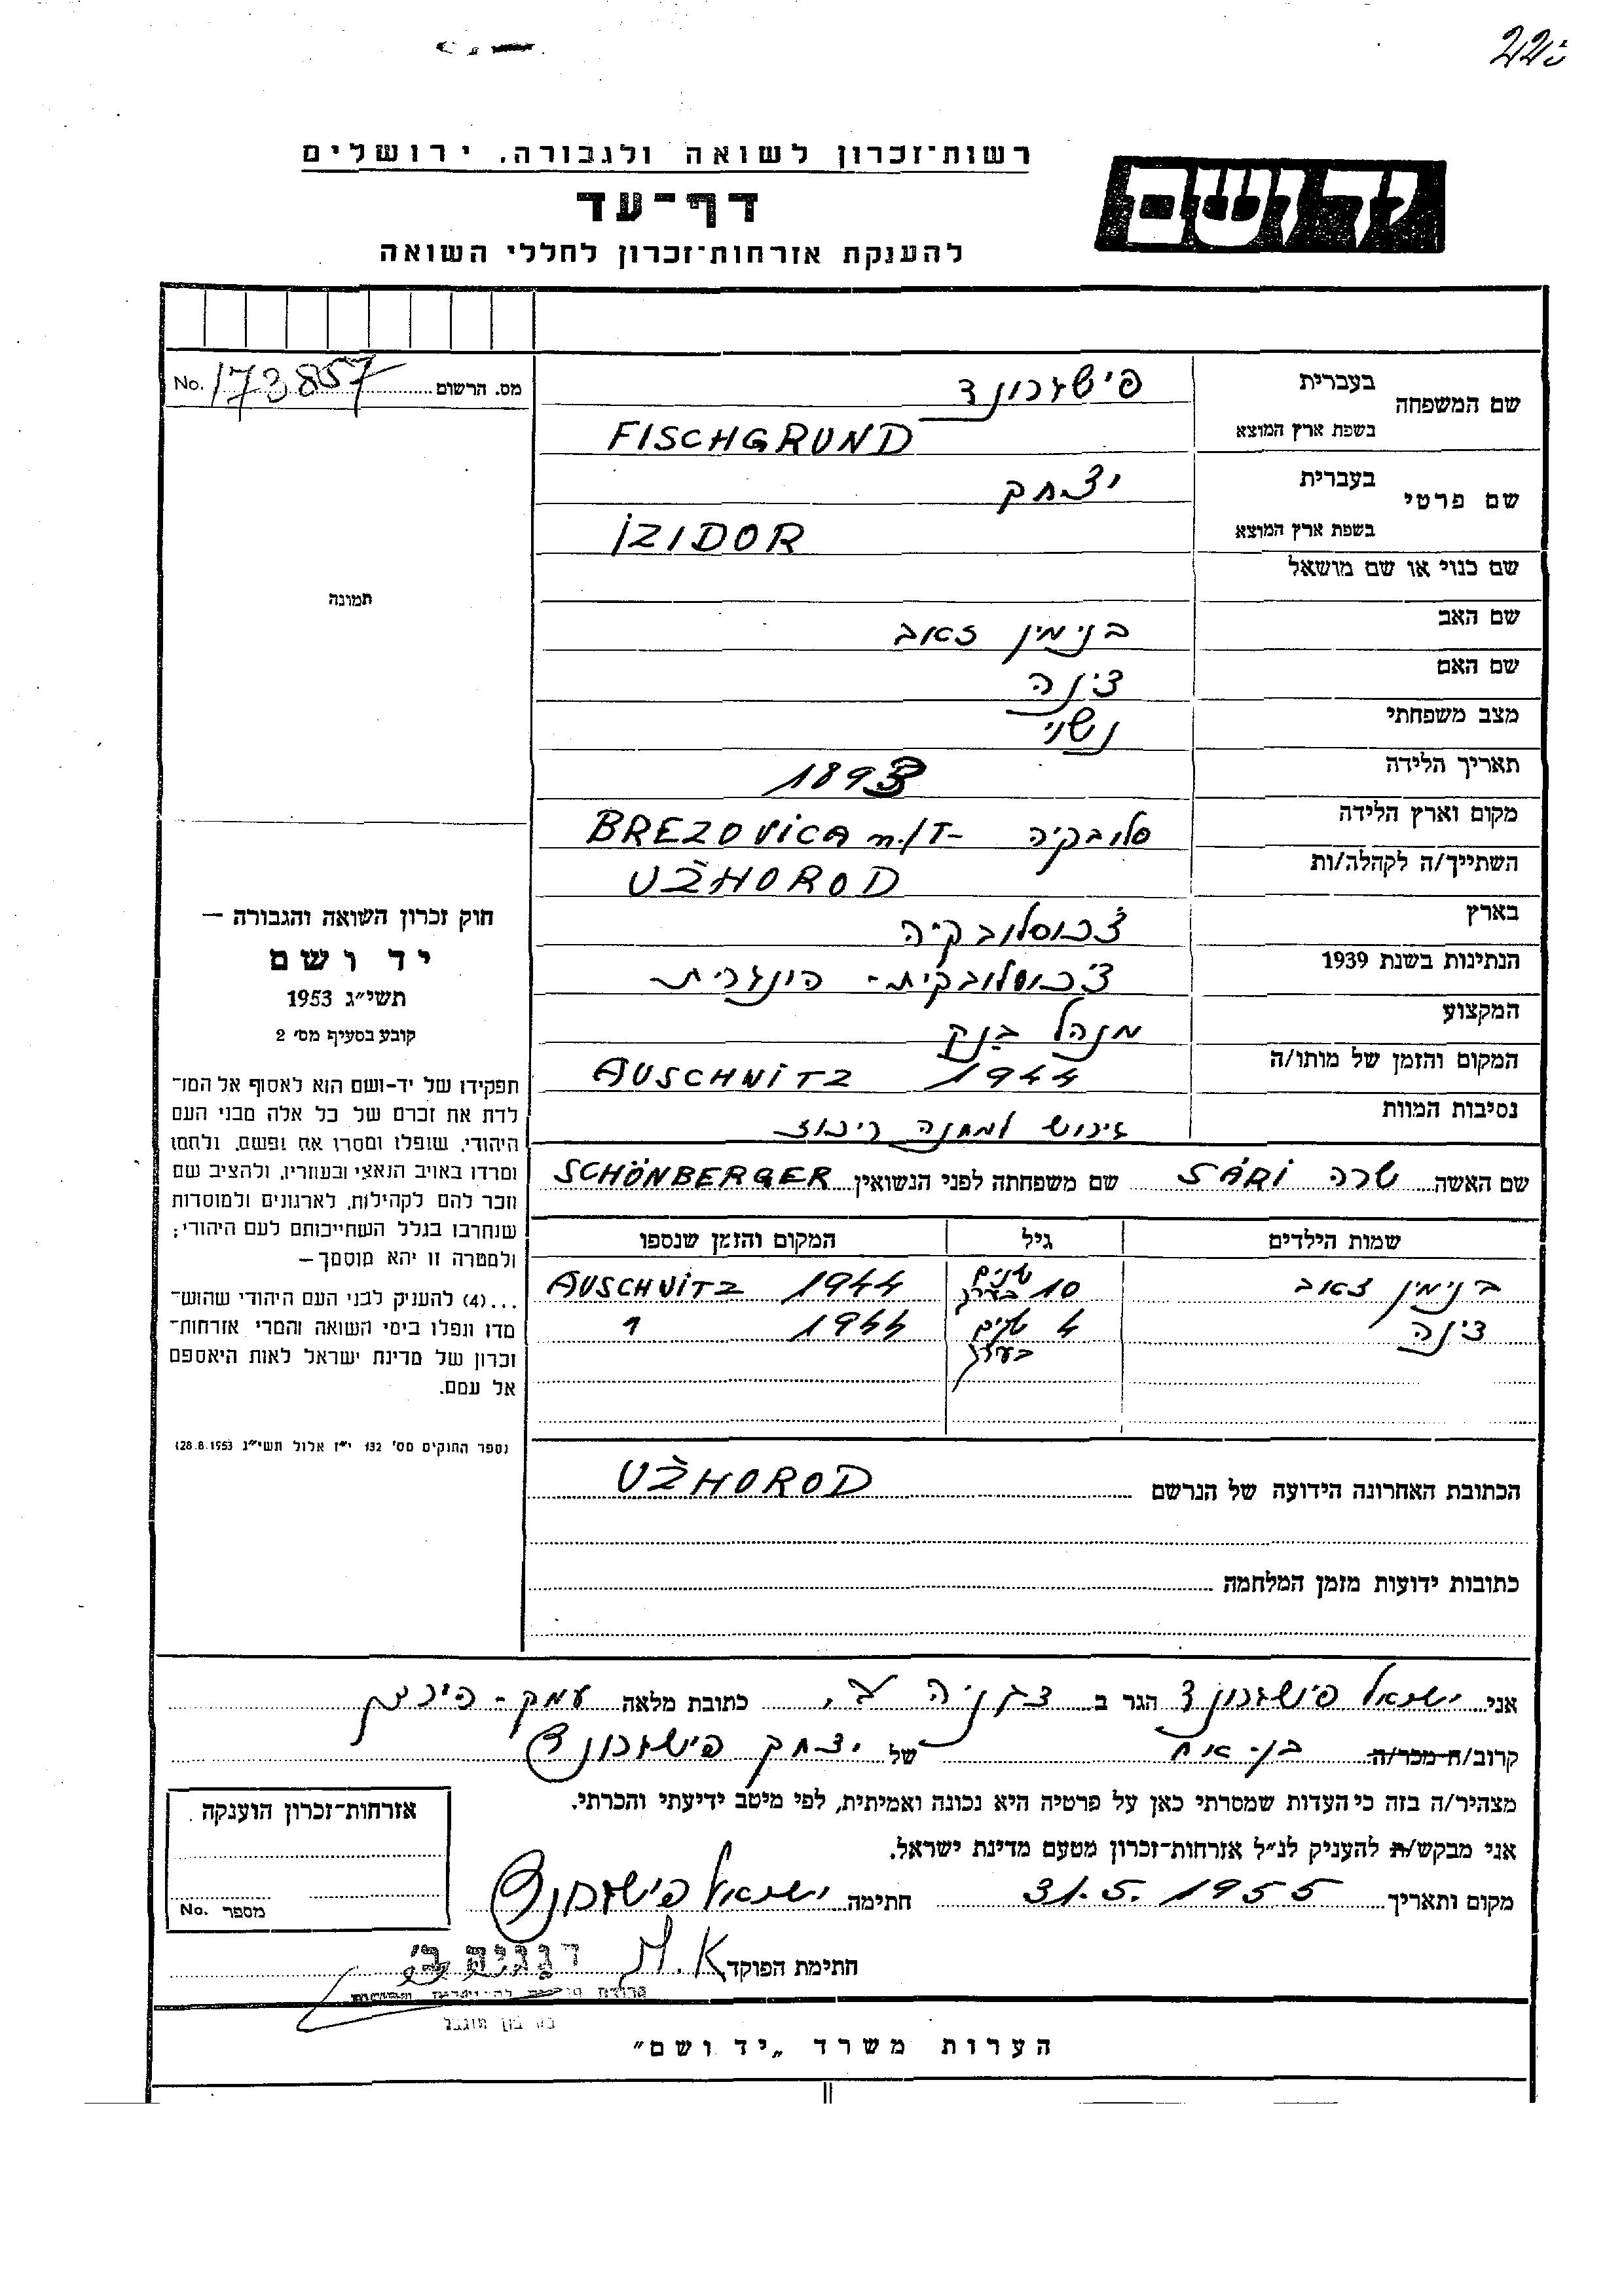 רשות־זכרון לשואה ולגבורה, ירושלים
יד ושם
דף־עד
להענקת אזרחות־זכרון לחללי השואה
מס. הרשום No. 173857
שם המשפחה בעברית פישגרונד
בשפת ארץ המוצא FISCHGRUND
שם פרטי בעברית יצחק
בשפת ארץ המוצא IZIDOR
שם כנוי או שם מושאל
תמונה
שם האב בנימין זאב
שם האם צינה
מצב משפחתי נשוי
תאריך הלידה 1893
מקום וארץ הלידה סלובקיה BREZOVICA n./T-
השתייך/ה לקהלה/ות UŽHOROD
בארץ צ'כוסלובקיה
הנתינות בשנת 1939 צ'כוסלובקית - הונגרית
המקצוע מנהל בנק
המקום והזמן של מותו/ה 1944 AUSCHWITZ
נסיבות המוות גירוש למחנה ריכוז
שם האשה שרה SÁRI שם משפחתה לפני הנשואין SCHÖNBERGER
שמות הילדים גיל המקום והזמן שנספו
בנימין זאב 10 שנים בערך 1944 AUSCHWITZ
צינה 4 שנים בערך 1944 "
הכתובת האחרונה הידועה של הנרשם UŽHOROD
כתובות ידועות מזמן המלחמה
חוק זכרון השואה והגבורה —
יד ושם
תשי״ג 1953
קובע בסעיף מס׳ 2
תפקידו של יד-ושם הוא לאסוף אל המו־
לדת את זכרם של כל אלה מבני העם
היהודי, שנפלו ומסרו את נפשם, נלחמו
ומרדו באויב הנאצי ובעוזריו, ולהציב שם
וזכר להם לקהילות, לארגונים ולמוסדות
שנחרבו בגלל השתייכותם לעם היהודי;
ולמטרה זו יהא מוסמך —
...(4) להעניק לבני העם היהודי שהוש־
מדו ונפלו בימי השואה והמרי אזרחות־
זכרון של מדינת ישראל לאות היאספם
אל עמם.
(ספר החוקים מס׳ 132 י״ז אלול תשי״ג 28.8.1953)
אני ישראל פישגרונד הגר ב דגניה ב', כתובת מלאה עמק-הירדן
קרוב/ה מכר/ה בן-אח של יצחק פישגרונד
מצהיר/ה בזה כי העדות שמסרתי כאן על פרטיה היא נכונה ואמיתית, לפי מיטב ידיעתי והכרתי.
אני מבקש/ת להעניק לנ״ל אזרחות־זכרון מטעם מדינת ישראל.
מקום ותאריך 31.5.1955 חתימה ישראל פישגרונד
חתימת הפוקד M.K דגניה ב'
אזרחות־זכרון הוענקה
מספר No.
הערות משרד „יד ושם״